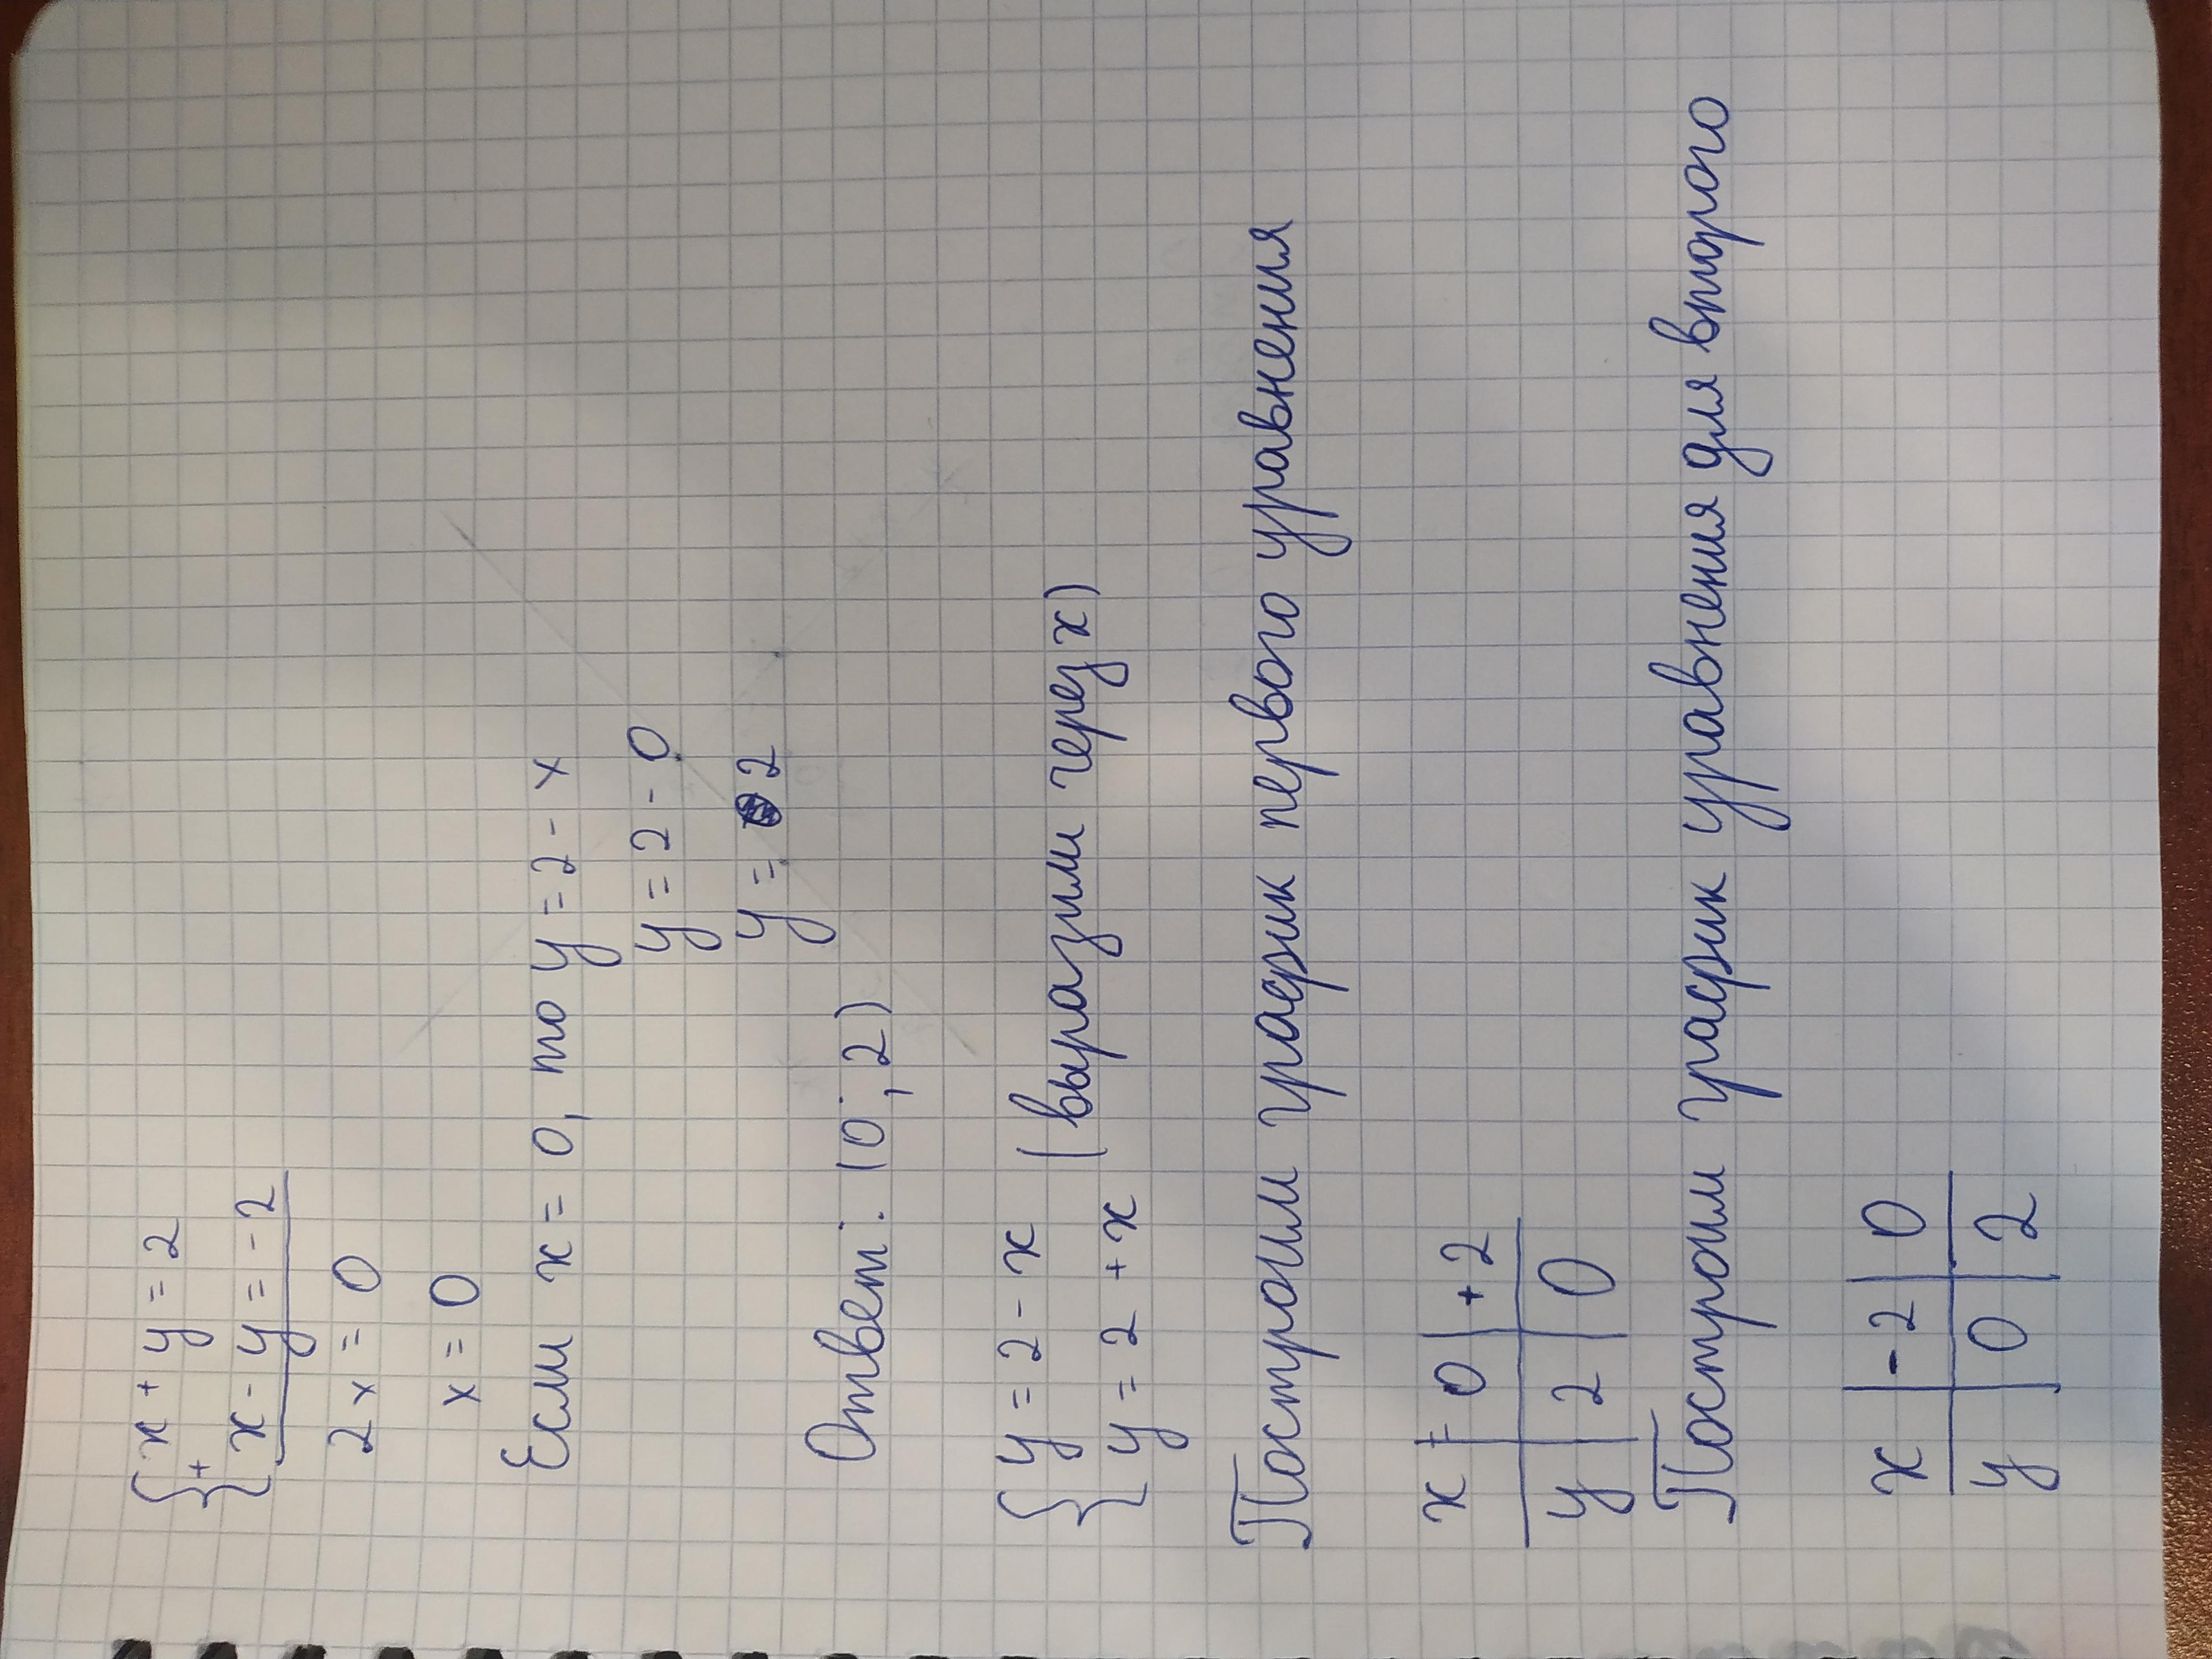 { x + y = 2
+
x - y = -2
2x = 0
x = 0
Если x = 0, то y = 2 - x
y = 2 - 0
y = 2
Ответ: (0; 2)
{ y = 2 - x (выразим через x)
y = 2 + x
Построим график первого уравнения
x | 0 | +2
y | 2 | 0
Построим график уравнения для второго
x | -2 | 0
y | 0 | 2